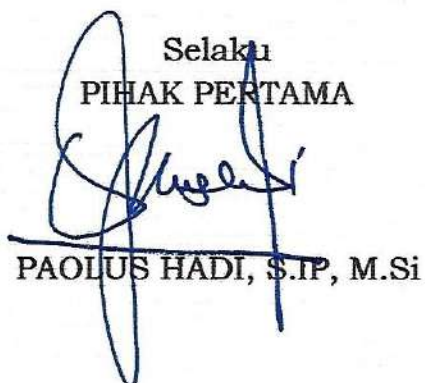 Selaku
PIHAK PERTAMA
PAOLUS HADI, S.IP, M.Si